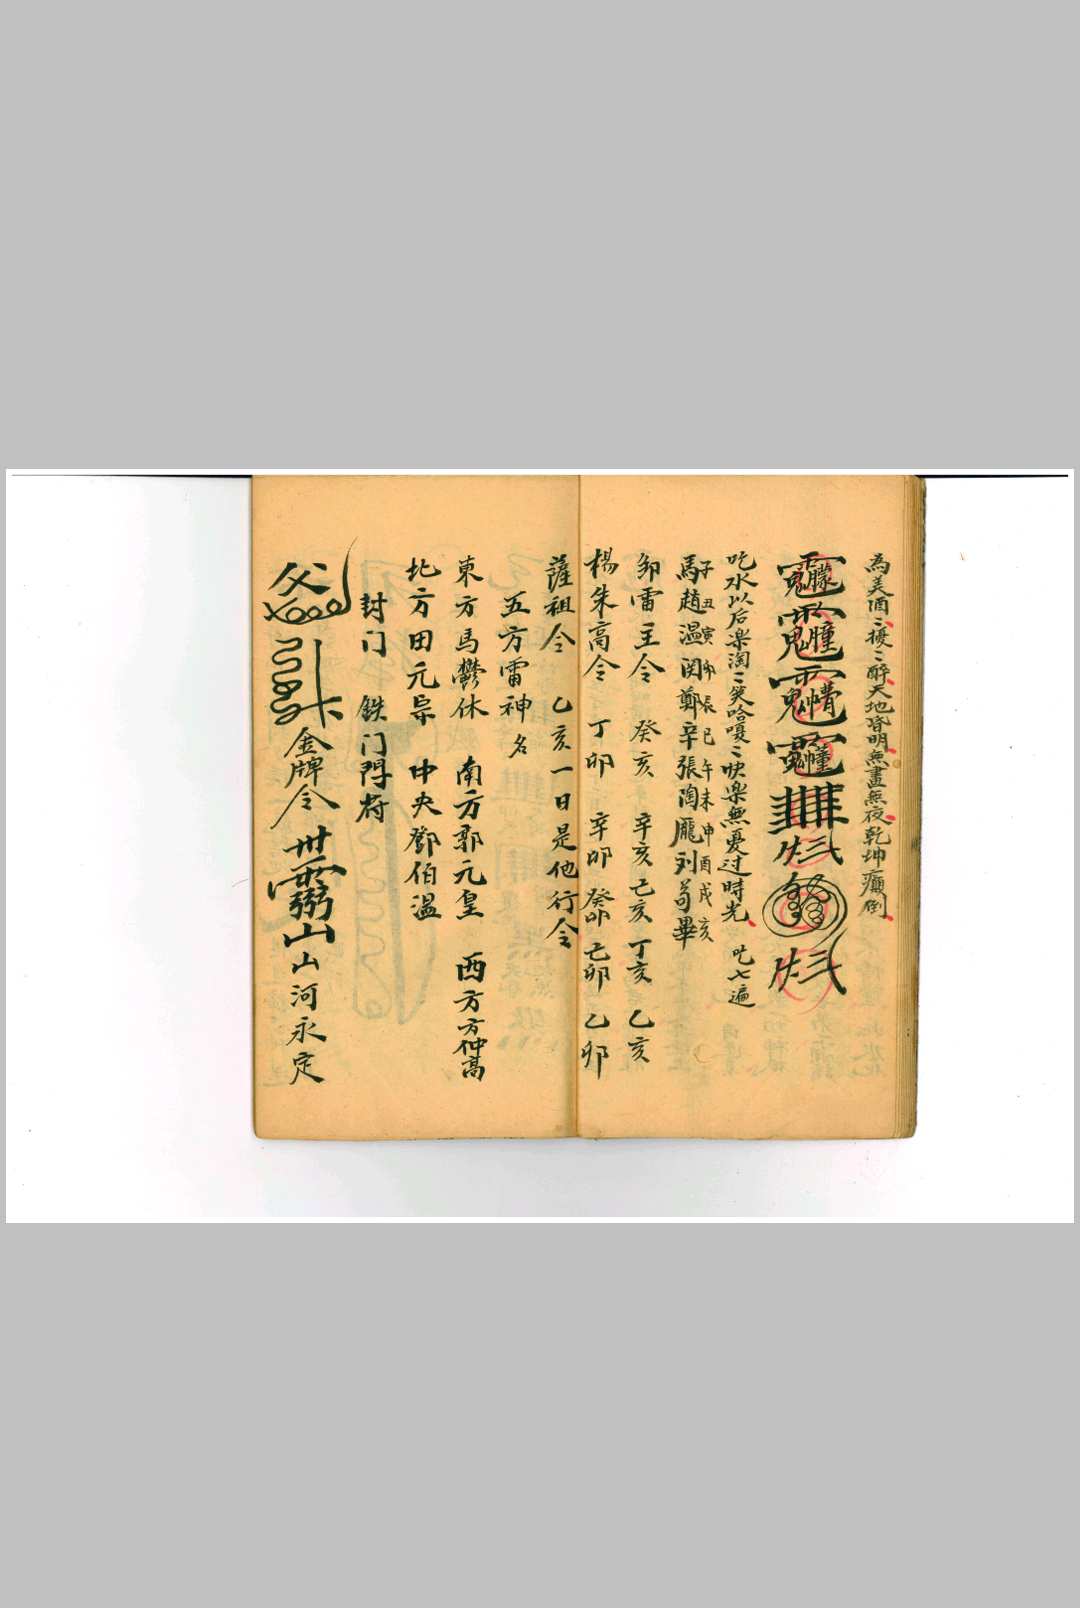 為美酒〻擾〻醉天地昏明無晝無夜乾坤癲倒
吃水以后楽淘〻笑哈嗄〻快楽無憂过時光 吃七遍
子丑寅卯辰巳午未申酉戌亥
馬趙温関鄭辛張陶龐刘苟畢
邹雷王令 癸亥 辛亥 己亥 丁亥 乙亥
楊朱高令 丁卯 辛卯 癸卯 己卯 乙卯
薩祖令 乙亥一日是他行令
五方雷神名
東方馬鬱休 南方郭元皇 西方方仲高
北方田元 中央鄧伯温
封门 鉄门 符
金牌令
山河永定